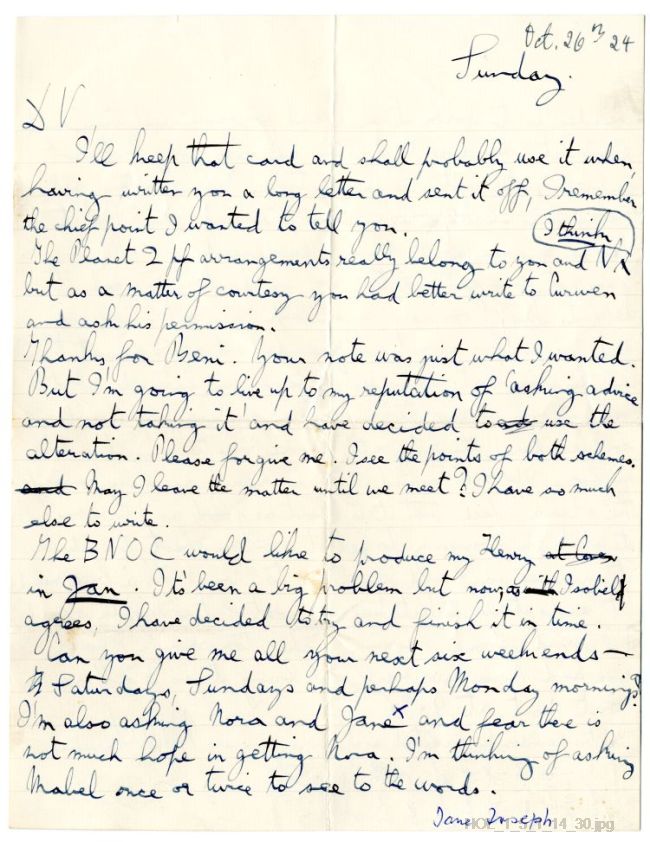 Oct. 26th 24
Sunday.
D V
I'll keep that card and shall probably use it when,
having written you a long letter and sent it off, I remember
the chief point I wanted to tell you.
I think
The Planet 2 pf arrangements really belong to you and N
but as a matter of courtesy you had better write to Curwen
and ask his permission.
Thanks for Beni. Your note was just what I wanted.
But I'm going to live up to my reputation of 'asking advice
and not taking it' and have decided to use the
alteration. Please forgive me. I see the points of both schemes.
and May I leave the matter until we meet? I have so much
else to write.
The BNOC would like to produce my Henry at Coven
in Jan. It's been a big problem but now, as Isobel
agrees, I have decided to try and finish it in time.
Can you give me all your next six weekends —
Saturdays, Sundays and perhaps Monday mornings?
I'm also asking Nora and Jane x and fear there is
not much hope in getting Nora. I'm thinking of asking
Mabel once or twice to see to the words.
Jane Joseph
HOL_1_5_1_14_30.jpg